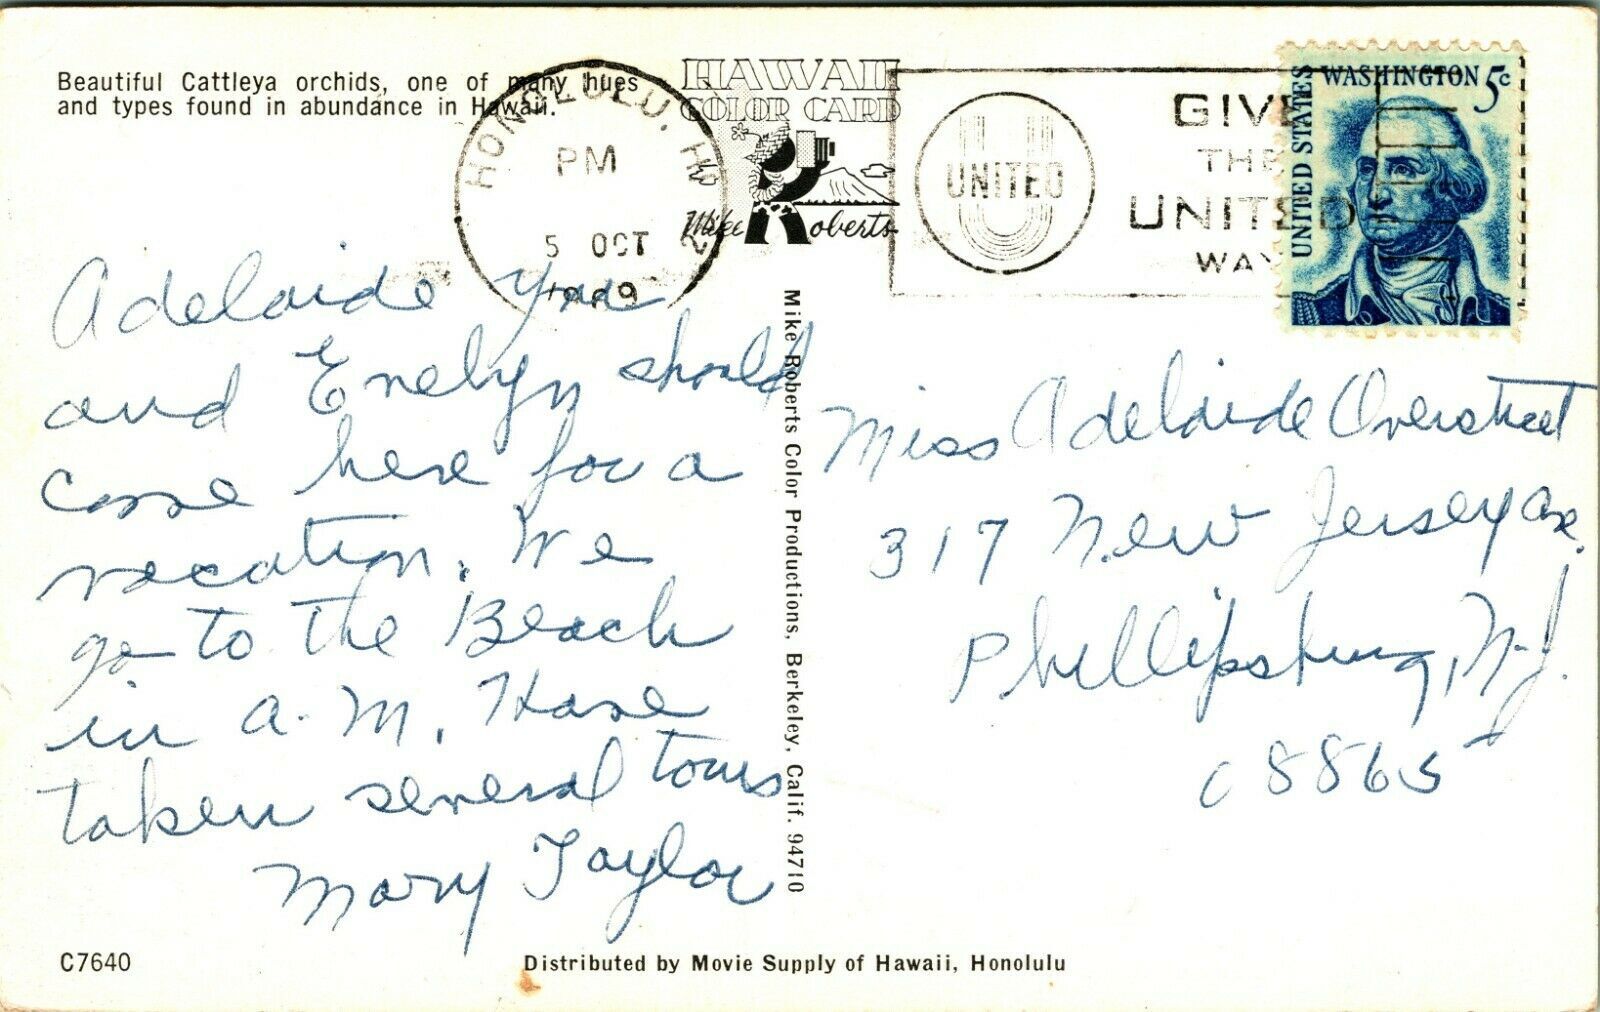 Beautiful Cattleya orchids, one of many hues
and types found in abundance in Hawaii.
HONOLULU, HI
PM
5 OCT
1969
HAWAII
COLOR CARD
Mike Roberts
UNITED
GIVE
THE
UNITED
WAY
WASHINGTON 5c
UNITED STATES
Adelaide you
and Evelyn should
come here for a
vacation. We
go to the Beach
in a.M. Have
taken several tours
Mary Taylor
Mike Roberts Color Productions, Berkeley, Calif. 94710
Miss Adelaide Overstreet
317 New Jersey Ave.
Phillipsburg, N.J.
08865
C7640
Distributed by Movie Supply of Hawaii, Honolulu